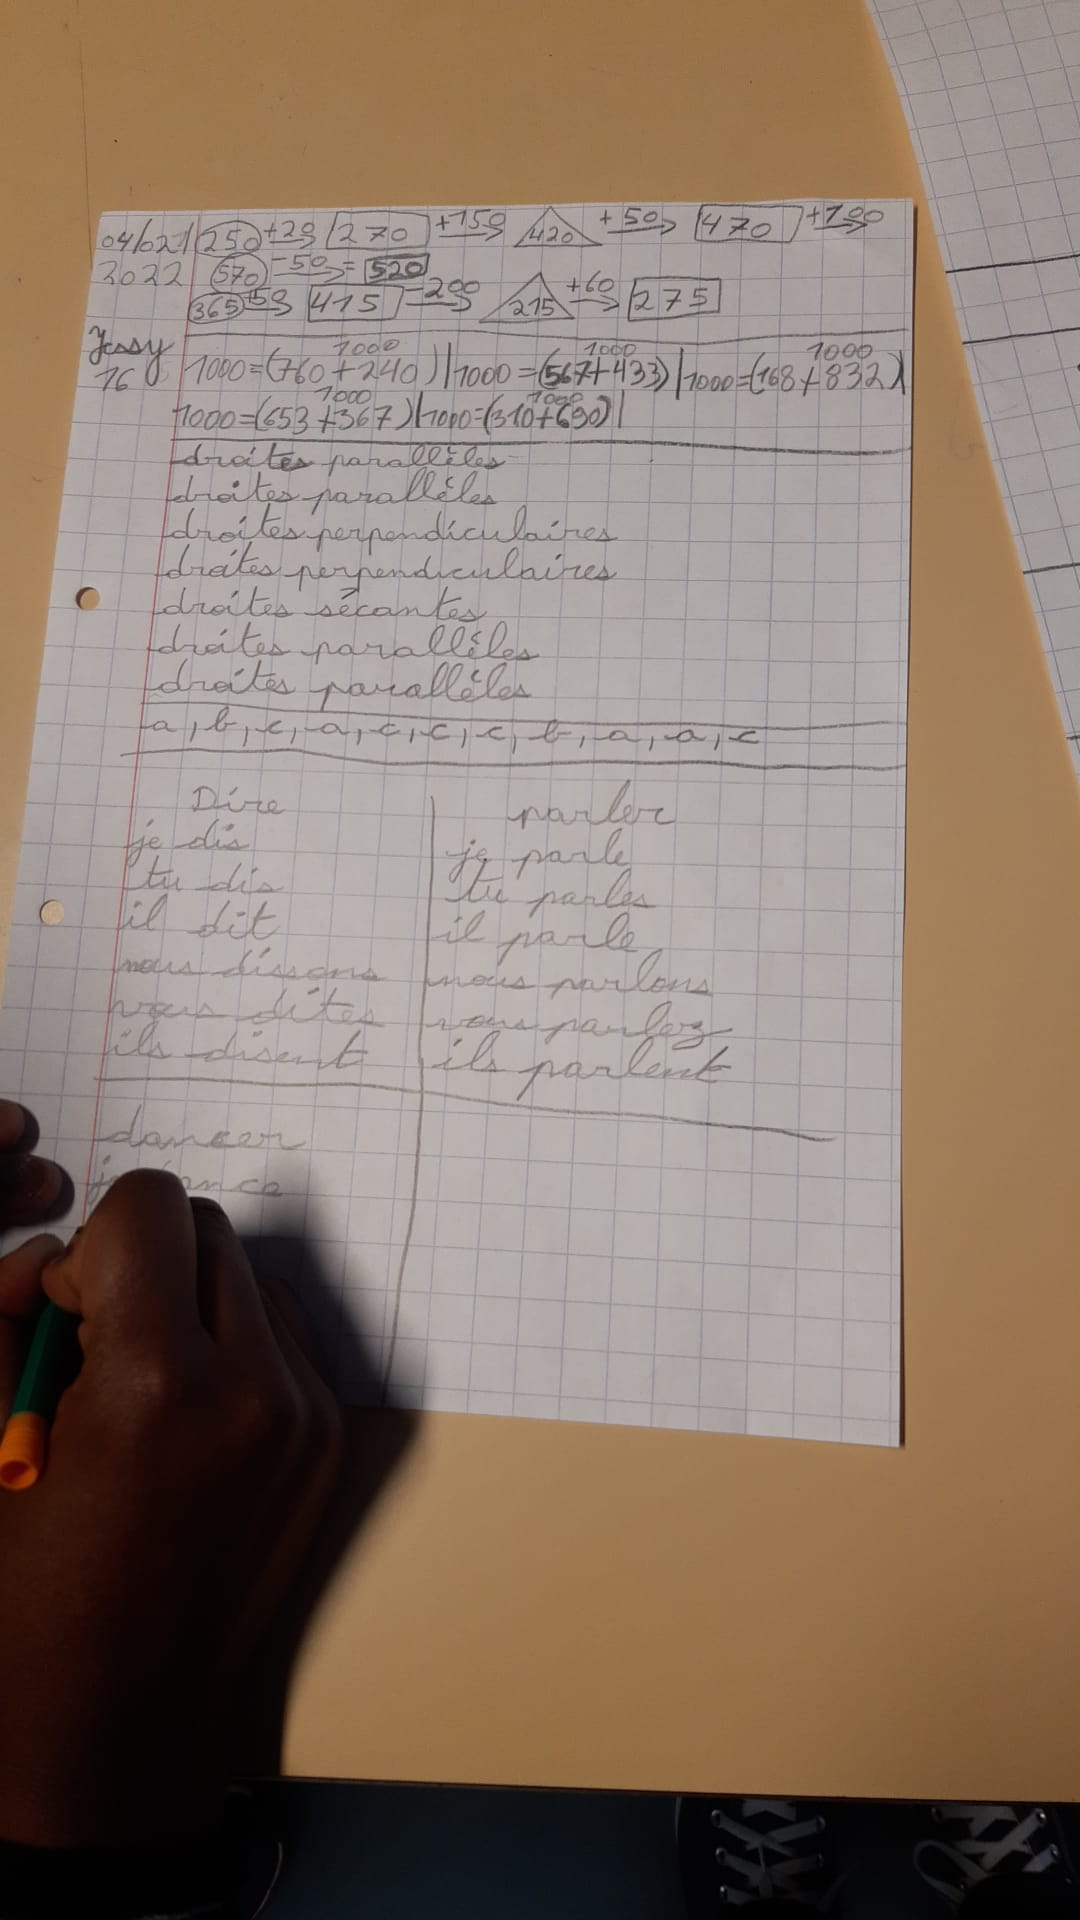 04/02/ 250 +20 270 +150 420 +50 470 +100
2022 570 -50 = 520
365 +50 415 -200 215 +60 275
Jessy
16
1000 1000 1000
1000=(760+240)|1000=(567+433)|1000=(168+832)
1000 1000
1000=(653+367)|1000=(310+690)|
droites parallèles
droites parallèles
droites perpendiculaires
droites perpendiculaires
droites sécantes
droites parallèles
droites parallèles
a, b, c, a, c, c, c, b, a, a, c
Dire parler
je dis je parle
tu dis tu parles
il dit il parle
nous dissons nous parlons
vous dites vous parlez
ils disent ils parlent
dancer